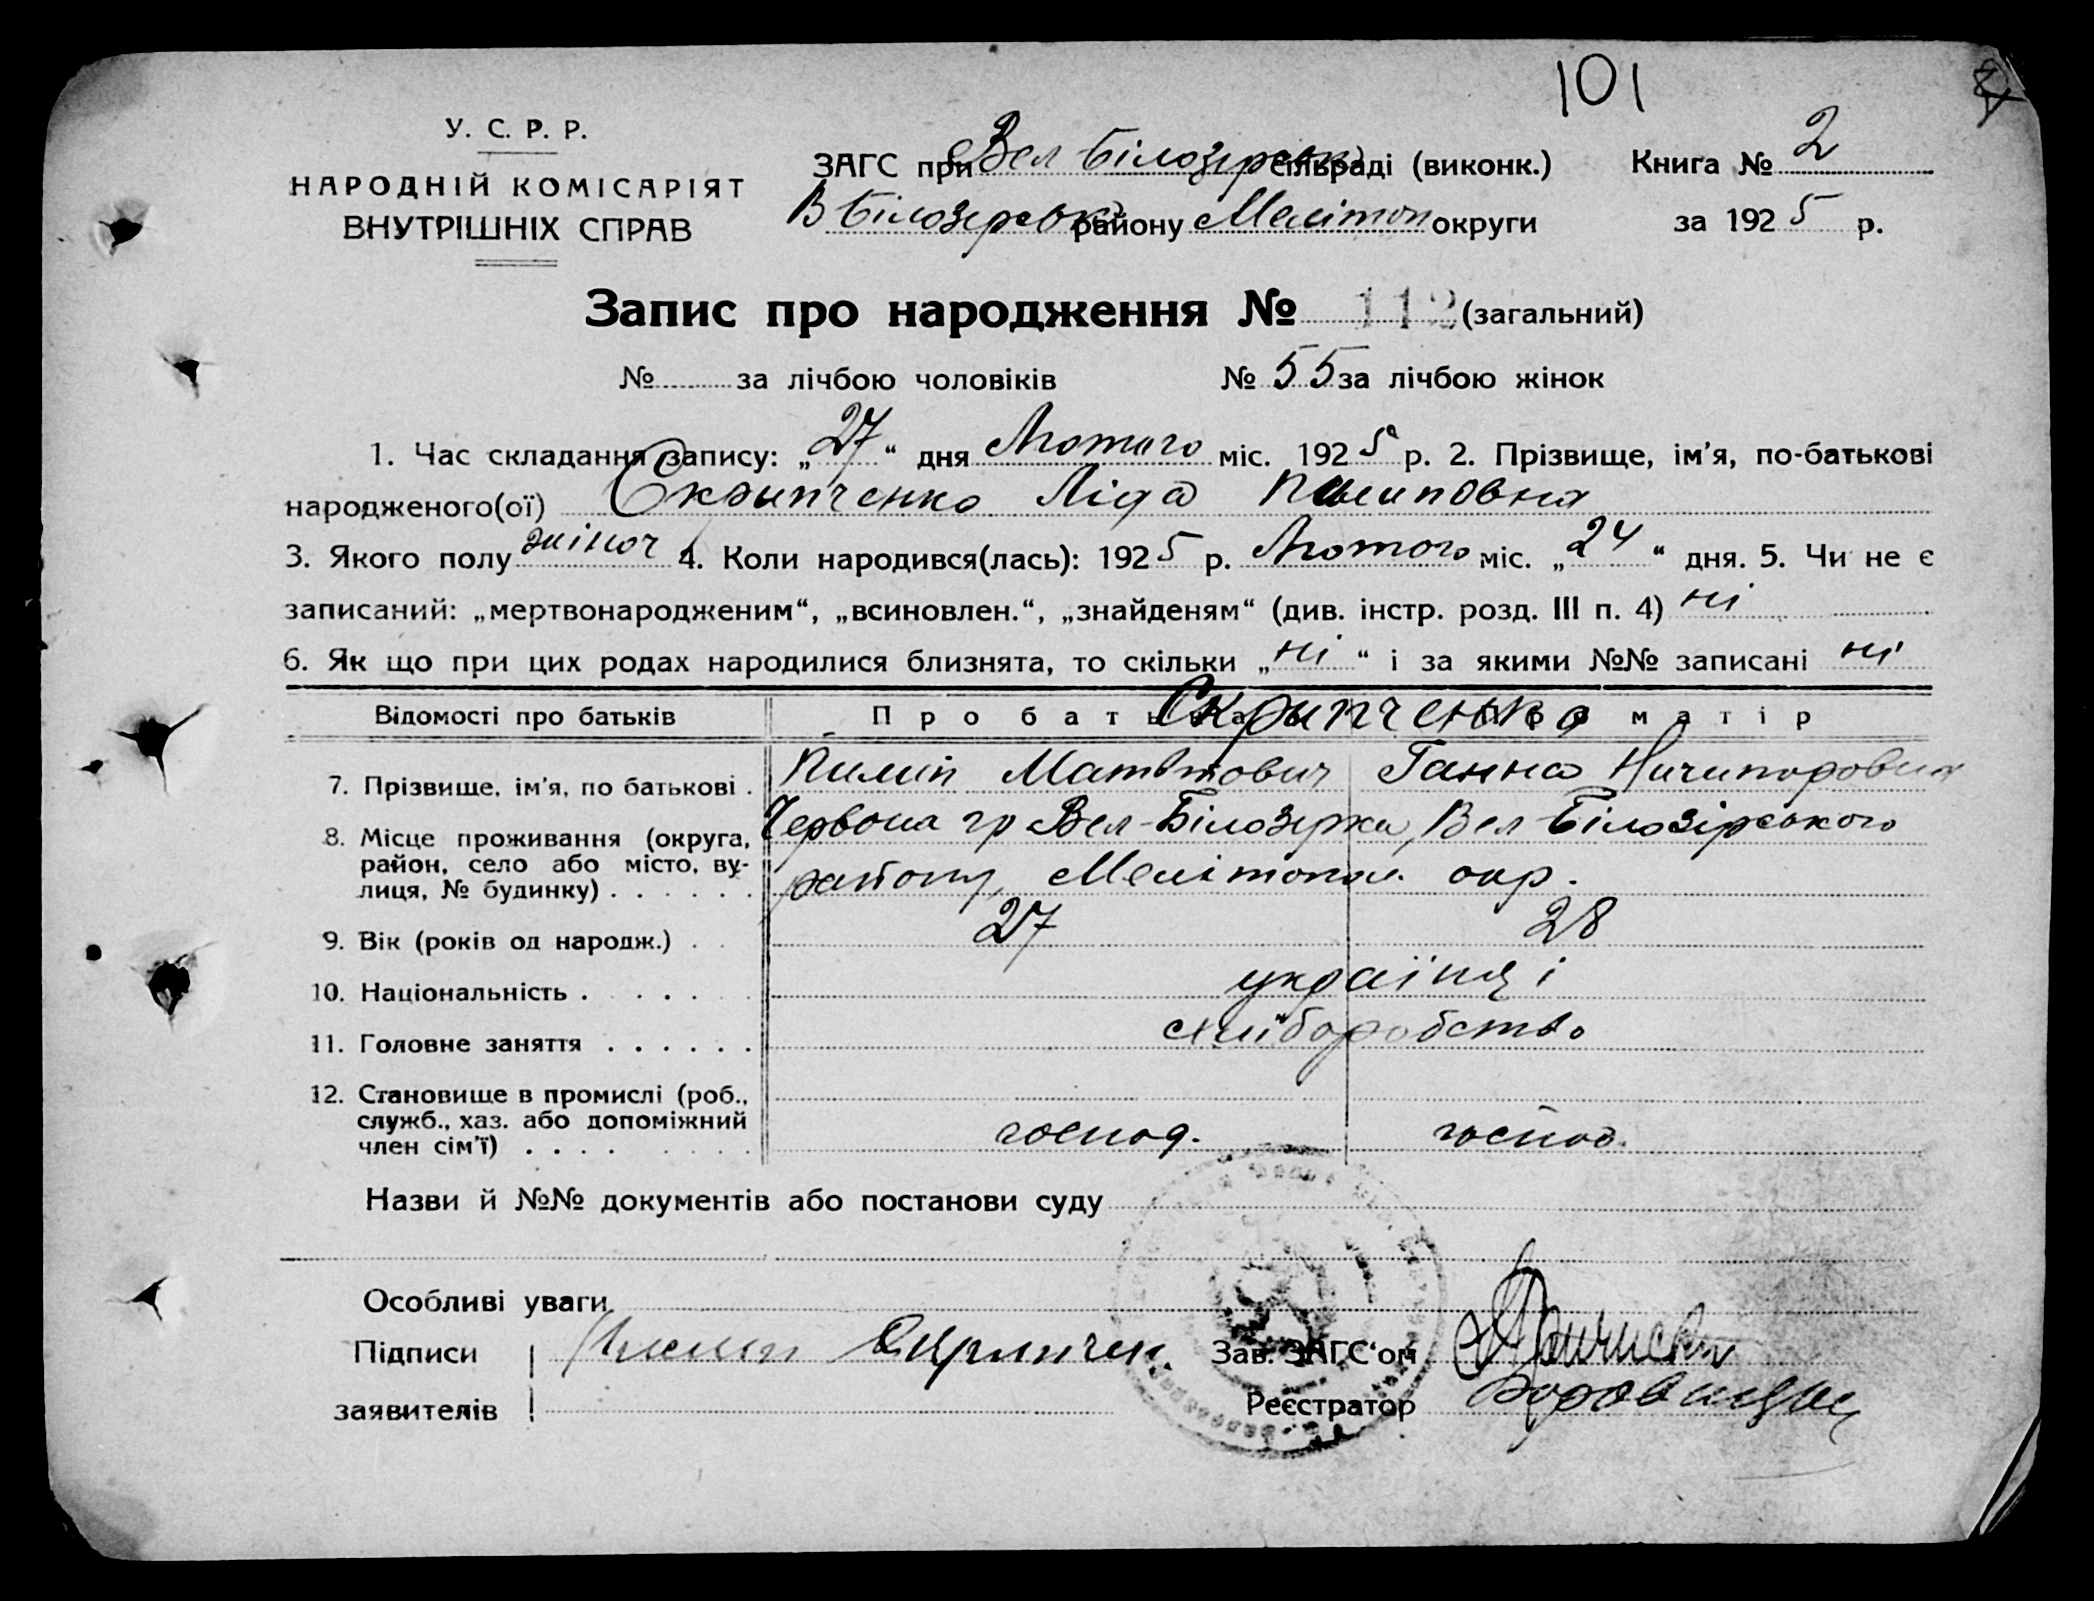 101
У. С. Р. Р.
НАРОДНІЙ КОМІСАРІЯТ
ВНУТРІШНІХ СПРАВ
ЗАГС при Вел Білозерськ сільраді (виконк.) Книга № 2
В Білозерськ району Мелітоп округи за 1925 р.
Запис про народження № 112 (загальний)
№ за лічбою чоловіків № 55 за лічбою жінок
1. Час складання запису: „27“ дня Лютого міс. 1925 р. 2. Прізвище, ім'я, по-батькові
народженого(ої) Скрипченко Ліда Пилиповна
3. Якого полу жіноч 4. Коли народився(лась): 1925 р. Лютого міс. „24“ дня. 5. Чи не є
записаний: „мертвонародженим“, „всиновлен.“, „знайденям“ (див. інстр. розд. III п. 4) ні
6. Як що при цих родах народилися близнята, то скільки „ні“ і за якими №№ записані ні
Відомості про батьків Про батька Про матір
Скрипченко
7. Прізвище, ім'я, по батькові . Пилип Матвтович Ганна Ничипоровна
8. Місце проживання (округа, Червона гр Вел-Білозерка, Вел Білозірського
район, село або місто, ву- району, Мелітопол. окр.
лиця, № будинку) . . . . . .
9. Вік (років од народж.) . . 27 28
10. Національність . . . . . українці
11. Головне заняття . . . . . . хліборобство
12. Становище в промислі (роб.,
служб., хаз. або допоміжний
член сім'ї) . . . . . . . . господ. господ.
Назви й №№ документів або постанови суду
Особливі уваги
Підписи Пилип Зав. ЗАГС'ом
заявителів Реєстратор